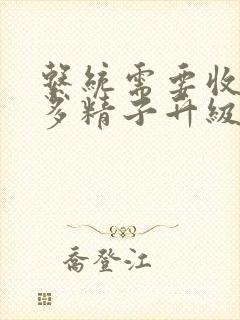 系統需要收
多精子升級
喬登江